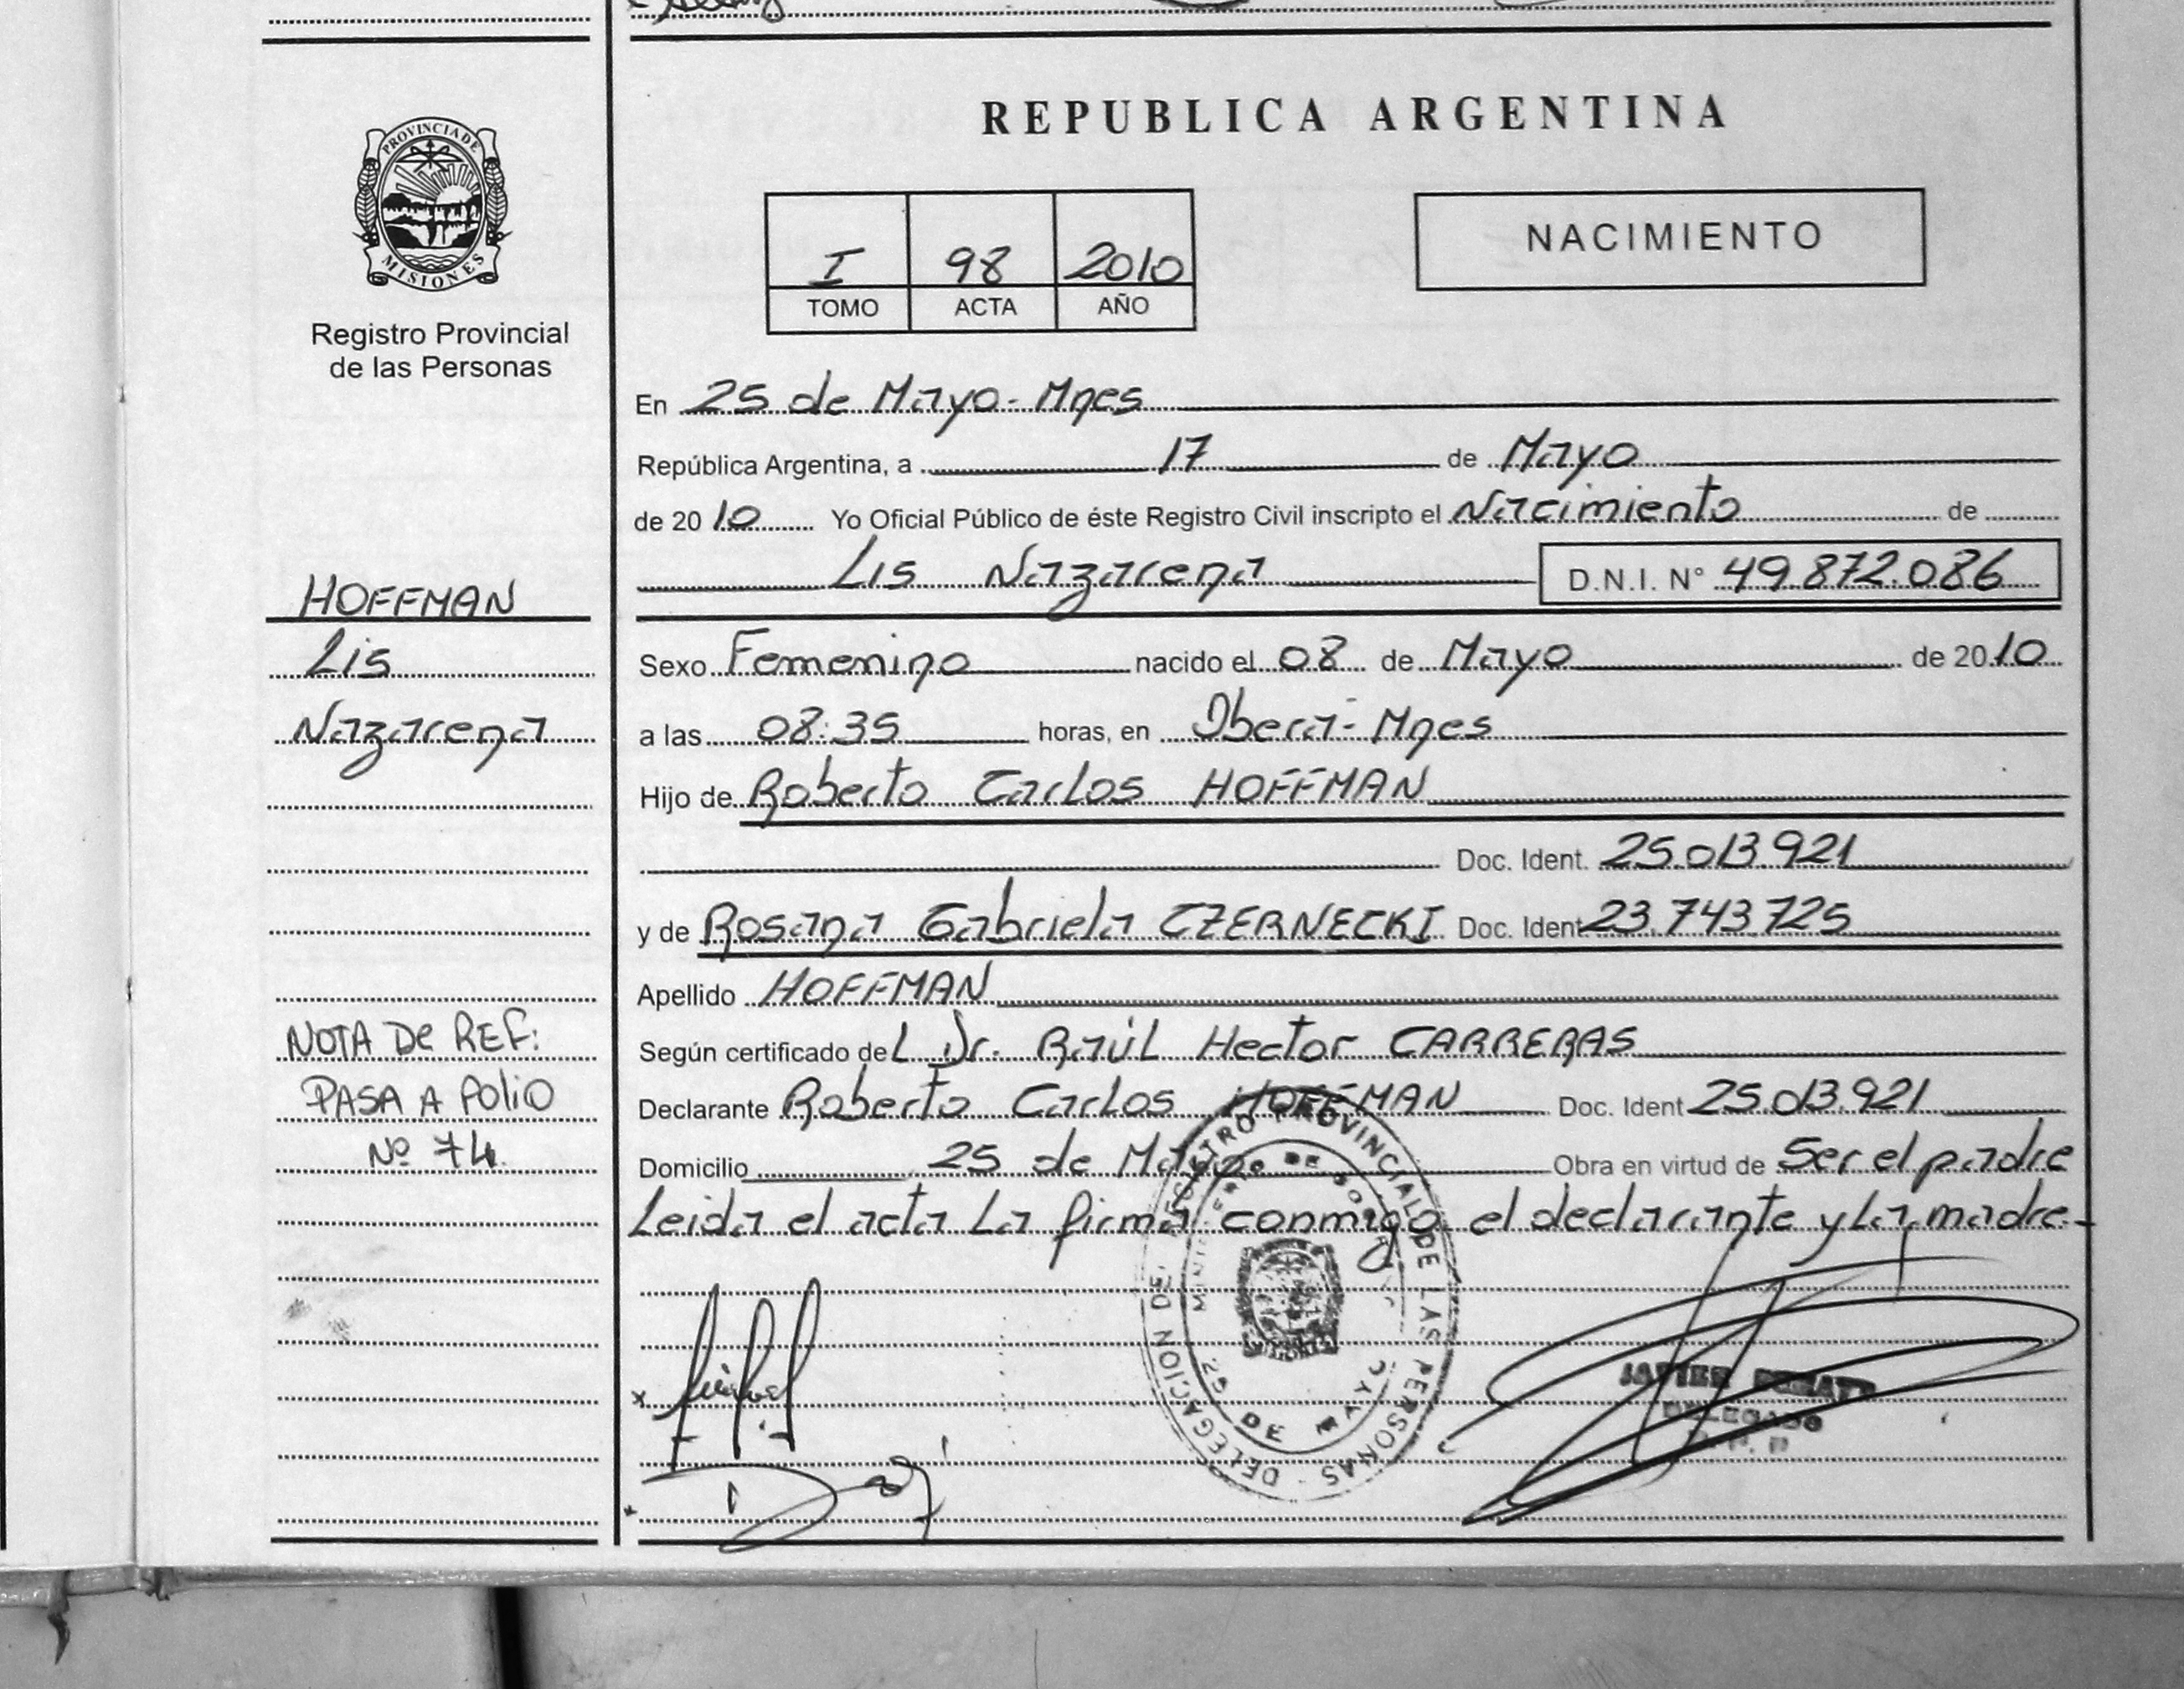 PROVINCIA DE
MISIONES
Registro Provincial
de las Personas
HOFFMAN
Lis
Nazarena
NOTA DE REF:
PASA A FOLIO
Nº 74
REPUBLICA ARGENTINA
I 98 2010
TOMO ACTA AÑO
NACIMIENTO
En 25 de Mayo - Mnes
República Argentina, a 17 de Mayo
de 20 10 Yo Oficial Público de éste Registro Civil inscripto el Nacimiento de
Lis Nazarena D.N.I. N° 49.872.086
Sexo Femenino nacido el 08 de Mayo de 20 10
a las 08:35 horas, en Oberá - Mnes
Hijo de Roberto Carlos HOFFMAN
Doc. Ident. 25.013.921
y de Rosana Gabriela CZERNECKI Doc. Ident 23.743.725
Apellido HOFFMAN
Según certificado del Dr. Raúl Hector CARRERAS
Declarante Roberto Carlos HOFFMAN Doc. Ident 25.013.921
Domicilio 25 de Mayo Obra en virtud de Ser el padre
Leida el acta La firma conmigo el declarante y La madre.-
REGISTRO PROVINCIAL DE LAS PERSONAS - DELEGACION DE
25 DE MAYO
JAVIER
DELEGADO